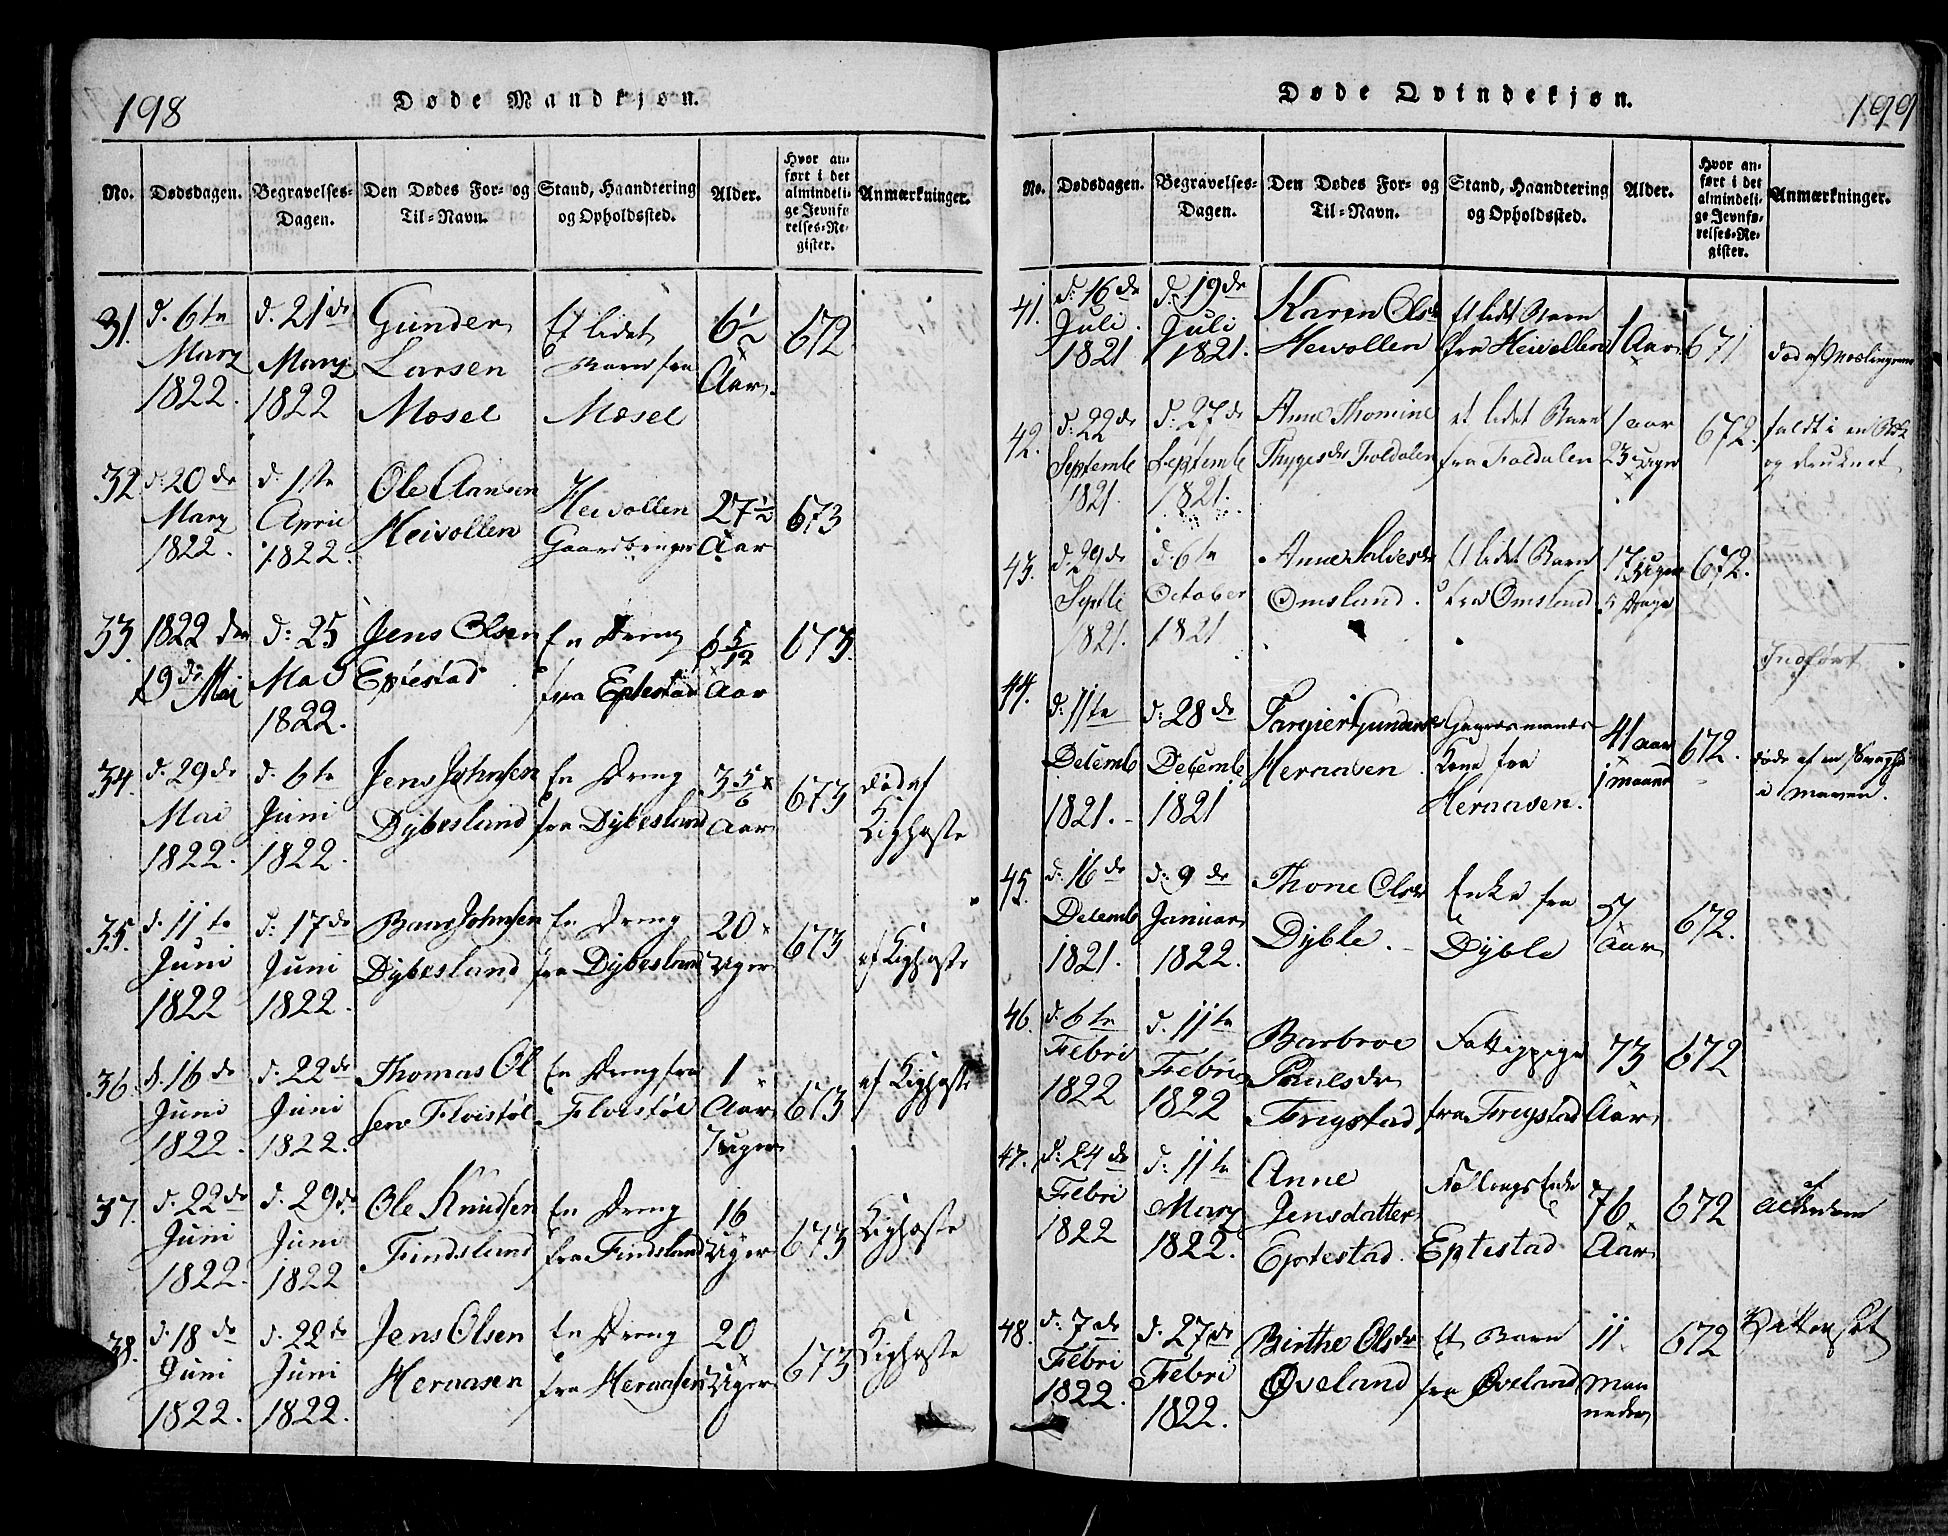 198
Døde Mandkjøn.
No. Dødsdagen. Begravelses-Dagen. Den Dødes For- og Til-Navn. Stand, Haandtering og Opholdssted. Alder. Hvor anført i det almindelige Jevnførelses-Register. Anmærkninger.
31. d. 6te Marz 1822. d. 21de Marz 1822 Gunder Larsen Mosel Et lidet Barn fra Mosel 6½ Aar 672
32 d. 20de Marz 1822. d. 1ste April 1822. Ole Aansen Heivollen Heivollen Gaardbruger 27½ Aar 673
33. 1822 den 19de Mai d: 25 Mai 1822. Jens Olsen Eptestad En Dreng fra Eptestad 6 5/12 Aar 673.
34. d. 29de Mai 1822. d. 6te Juni 1822. Jens Johnsen Dybesland En Dreng fra Dybesland 3 5/6 Aar 673 død af Kighoste
35. d. 11te Juni 1822 d. 17de Juni 1822. Johnsen Dybesland En Dreng fra Dybesland 20 Uger 673 af Kighoste
36. d. 16de Juni 1822. d. 22de Juni 1822. Thomas Olsen Flvistøl En Dreng fra Flvistøl 1 Aar 7 uger 673 af Kighoste
37. d. 22de Juni 1822. d. 29de Juni 1822 Ole Knudsen Findsland En Dreng fra Findsland 16 Uger 673 Kighoste
38. d. 18de Juni 1822. d. 22de Juni 1822. Jens Olsen Heraasen En Dreng fra Heraasen 20 Uger 673 Kighoste
199
Døde Qvindekjøn.
No. Dødsdagen. Begravelses-Dagen. Den Dødes For- og Til-Navn. Stand, Haandtering og Opholdssted. Alder. Hvor anført i det almindelige Jevnførelses-Register. Anmærkninger.
41. d. 16de Juli. 1821 d. 19de Juli 1821. Karen Olsdr Heivollen Et lidet Barn fra Heivollen 1 Aar 671 død af Mæslingerne
42. d: 22de Septemb 1821. d: 27de Septemb 1821. Anne Thomine Thygesdr Foldalen et lidet Barn fra Foldalen 1 aar 23 Uger 672. faldt i en Bæk og druknet
43. d. 29de Septb 1821. d. 6te October 1821 Anne Salvesdr Omsland. Et lidet Barn fra Omsland 17 Uger 5 Dage 672.
Indført
44. d. 11te Decemb 1821. d. 28de Decemb 1821 Targier Gundersdr Heraasen Gaardmands Kone fra Heraasen. 41 aar 1 maaned 672. døde af en Svaghed i maven.
45. d. 16de Decemb 1821. d: 9de Januar 1822. Thone Olsdr Dyble. Enke fra Dyble 57 Aar 672.
46. d. 6te Febri 1822 d. 11te Febri 1822 Barbroe Paulsdr Frigstad Fattigpige fra Frigstad 73 Aar 672
47. d. 24de Febri 1822 d. 11te Marz 1822. Anne Jensdatter Eptestad. Føllings Enke Eptestad 76 Aar 672 af Alderdom
48. d. 7de Febri 1822. d. 27de Febri 1822. Birthe Olsdr Øveland Et Barn fra Øveland 11 Maaneder 672